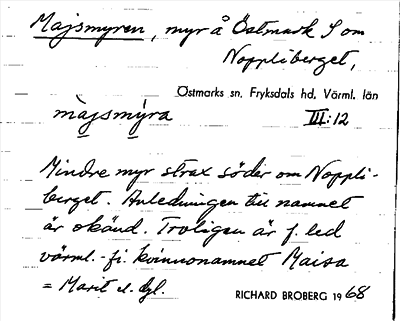 Majsmyren, myr å Östmark S om
Noppliberget,
Östmarks sn. Fryksdals hd. Värml. län
màjsmýra III:12
Mindre myr strax söder om Noppli-
berget. Anledningen till namnet
är okänd. Troligen är f. led
värml.-fi. kvinnonamnet Maisa
= Marit el. dyl.
RICHARD BROBERG 1968